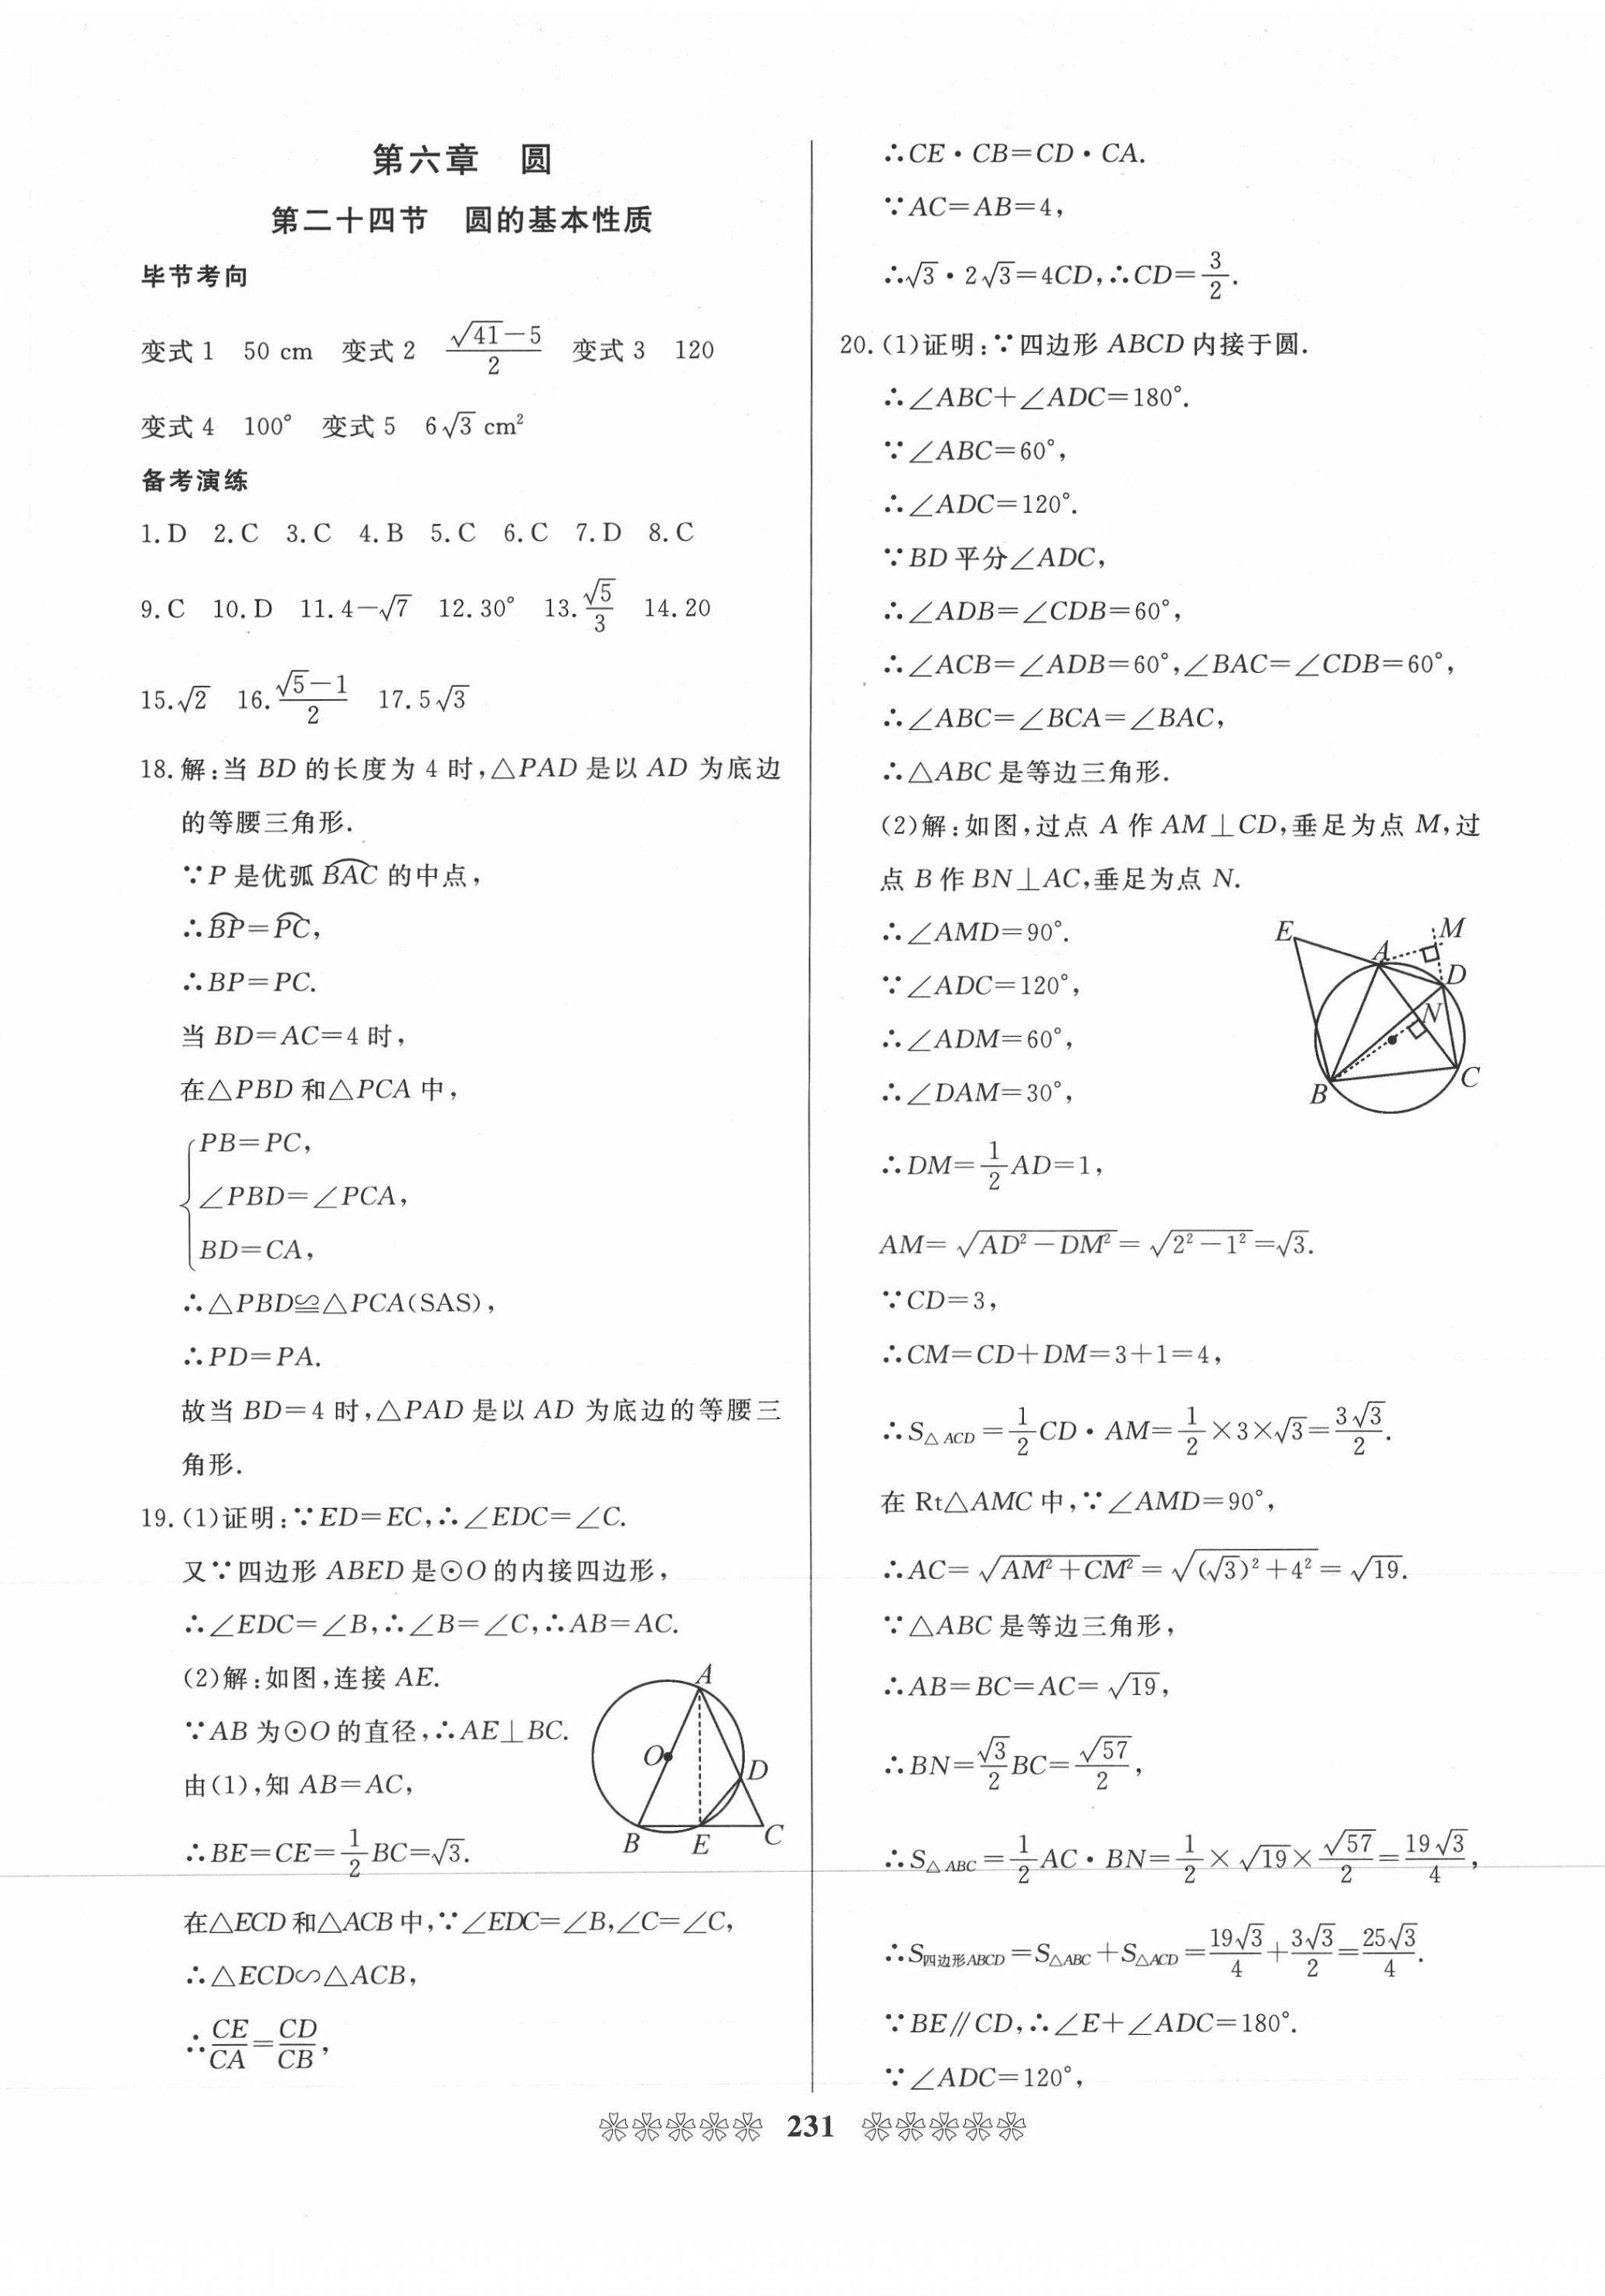 第六章 圆
第二十四节 圆的基本性质
毕节考向
变式 1 50 cm 变式 2 (√41－5)/2 变式 3 120
变式 4 100° 变式 5 6√3 cm²
备考演练
1. D 2. C 3. C 4. B 5. C 6. C 7. D 8. C
9. C 10. D 11. 4－√7 12. 30° 13. √5/3 14. 20
15. √2 16. (√5－1)/2 17. 5√3
18. 解:当 BD 的长度为 4 时,△PAD 是以 AD 为底边
的等腰三角形.
∵P 是优弧 BAC⌒ 的中点,
∴BP⌒=PC⌒,
∴BP=PC.
当 BD=AC=4 时,
在△PBD 和△PCA 中,
{PB=PC,
∠PBD=∠PCA,
BD=CA,
∴△PBD≌△PCA(SAS),
∴PD=PA.
故当 BD=4 时,△PAD 是以 AD 为底边的等腰三
角形.
19. (1)证明:∵ED=EC,∴∠EDC=∠C.
又∵四边形 ABED 是⊙O 的内接四边形,
∴∠EDC=∠B,∴∠B=∠C,∴AB=AC.
(2)解:如图,连接 AE.
∵AB 为⊙O 的直径,∴AE⊥BC.
由(1),知 AB=AC,
∴BE=CE=1/2 BC=√3.
A
O
D
B
E
C
在△ECD 和△ACB 中,∵∠EDC=∠B,∠C=∠C,
∴△ECD∽△ACB,
∴CE/CA=CD/CB,
∴CE·CB=CD·CA.
∵AC=AB=4,
∴√3·2√3=4CD,∴CD=3/2.
20. (1)证明:∵四边形 ABCD 内接于圆.
∴∠ABC+∠ADC=180°.
∵∠ABC=60°,
∴∠ADC=120°.
∵BD 平分∠ADC,
∴∠ADB=∠CDB=60°,
∴∠ACB=∠ADB=60°,∠BAC=∠CDB=60°,
∴∠ABC=∠BCA=∠BAC,
∴△ABC 是等边三角形.
(2)解:如图,过点 A 作 AM⊥CD,垂足为点 M,过
点 B 作 BN⊥AC,垂足为点 N.
∴∠AMD=90°.
∵∠ADC=120°,
∴∠ADM=60°,
∴∠DAM=30°,
E
A
M
D
N
B
C
∴DM=1/2 AD=1,
AM=√(AD²－DM²)=√(2²－1²)=√3.
∵CD=3,
∴CM=CD+DM=3+1=4,
∴S△ACD=1/2 CD·AM=1/2×3×√3=3√3/2.
在 Rt△AMC 中,∵∠AMD=90°,
∴AC=√(AM²+CM²)=√((√3)²+4²)=√19.
∵△ABC 是等边三角形,
∴AB=BC=AC=√19,
∴BN=√3/2 BC=√57/2,
∴S△ABC=1/2 AC·BN=1/2×√19×√57/2=19√3/4,
∴S四边形ABCD=S△ABC+S△ACD=19√3/4+3√3/2=25√3/4.
∵BE∥CD,∴∠E+∠ADC=180°.
∵∠ADC=120°,
231